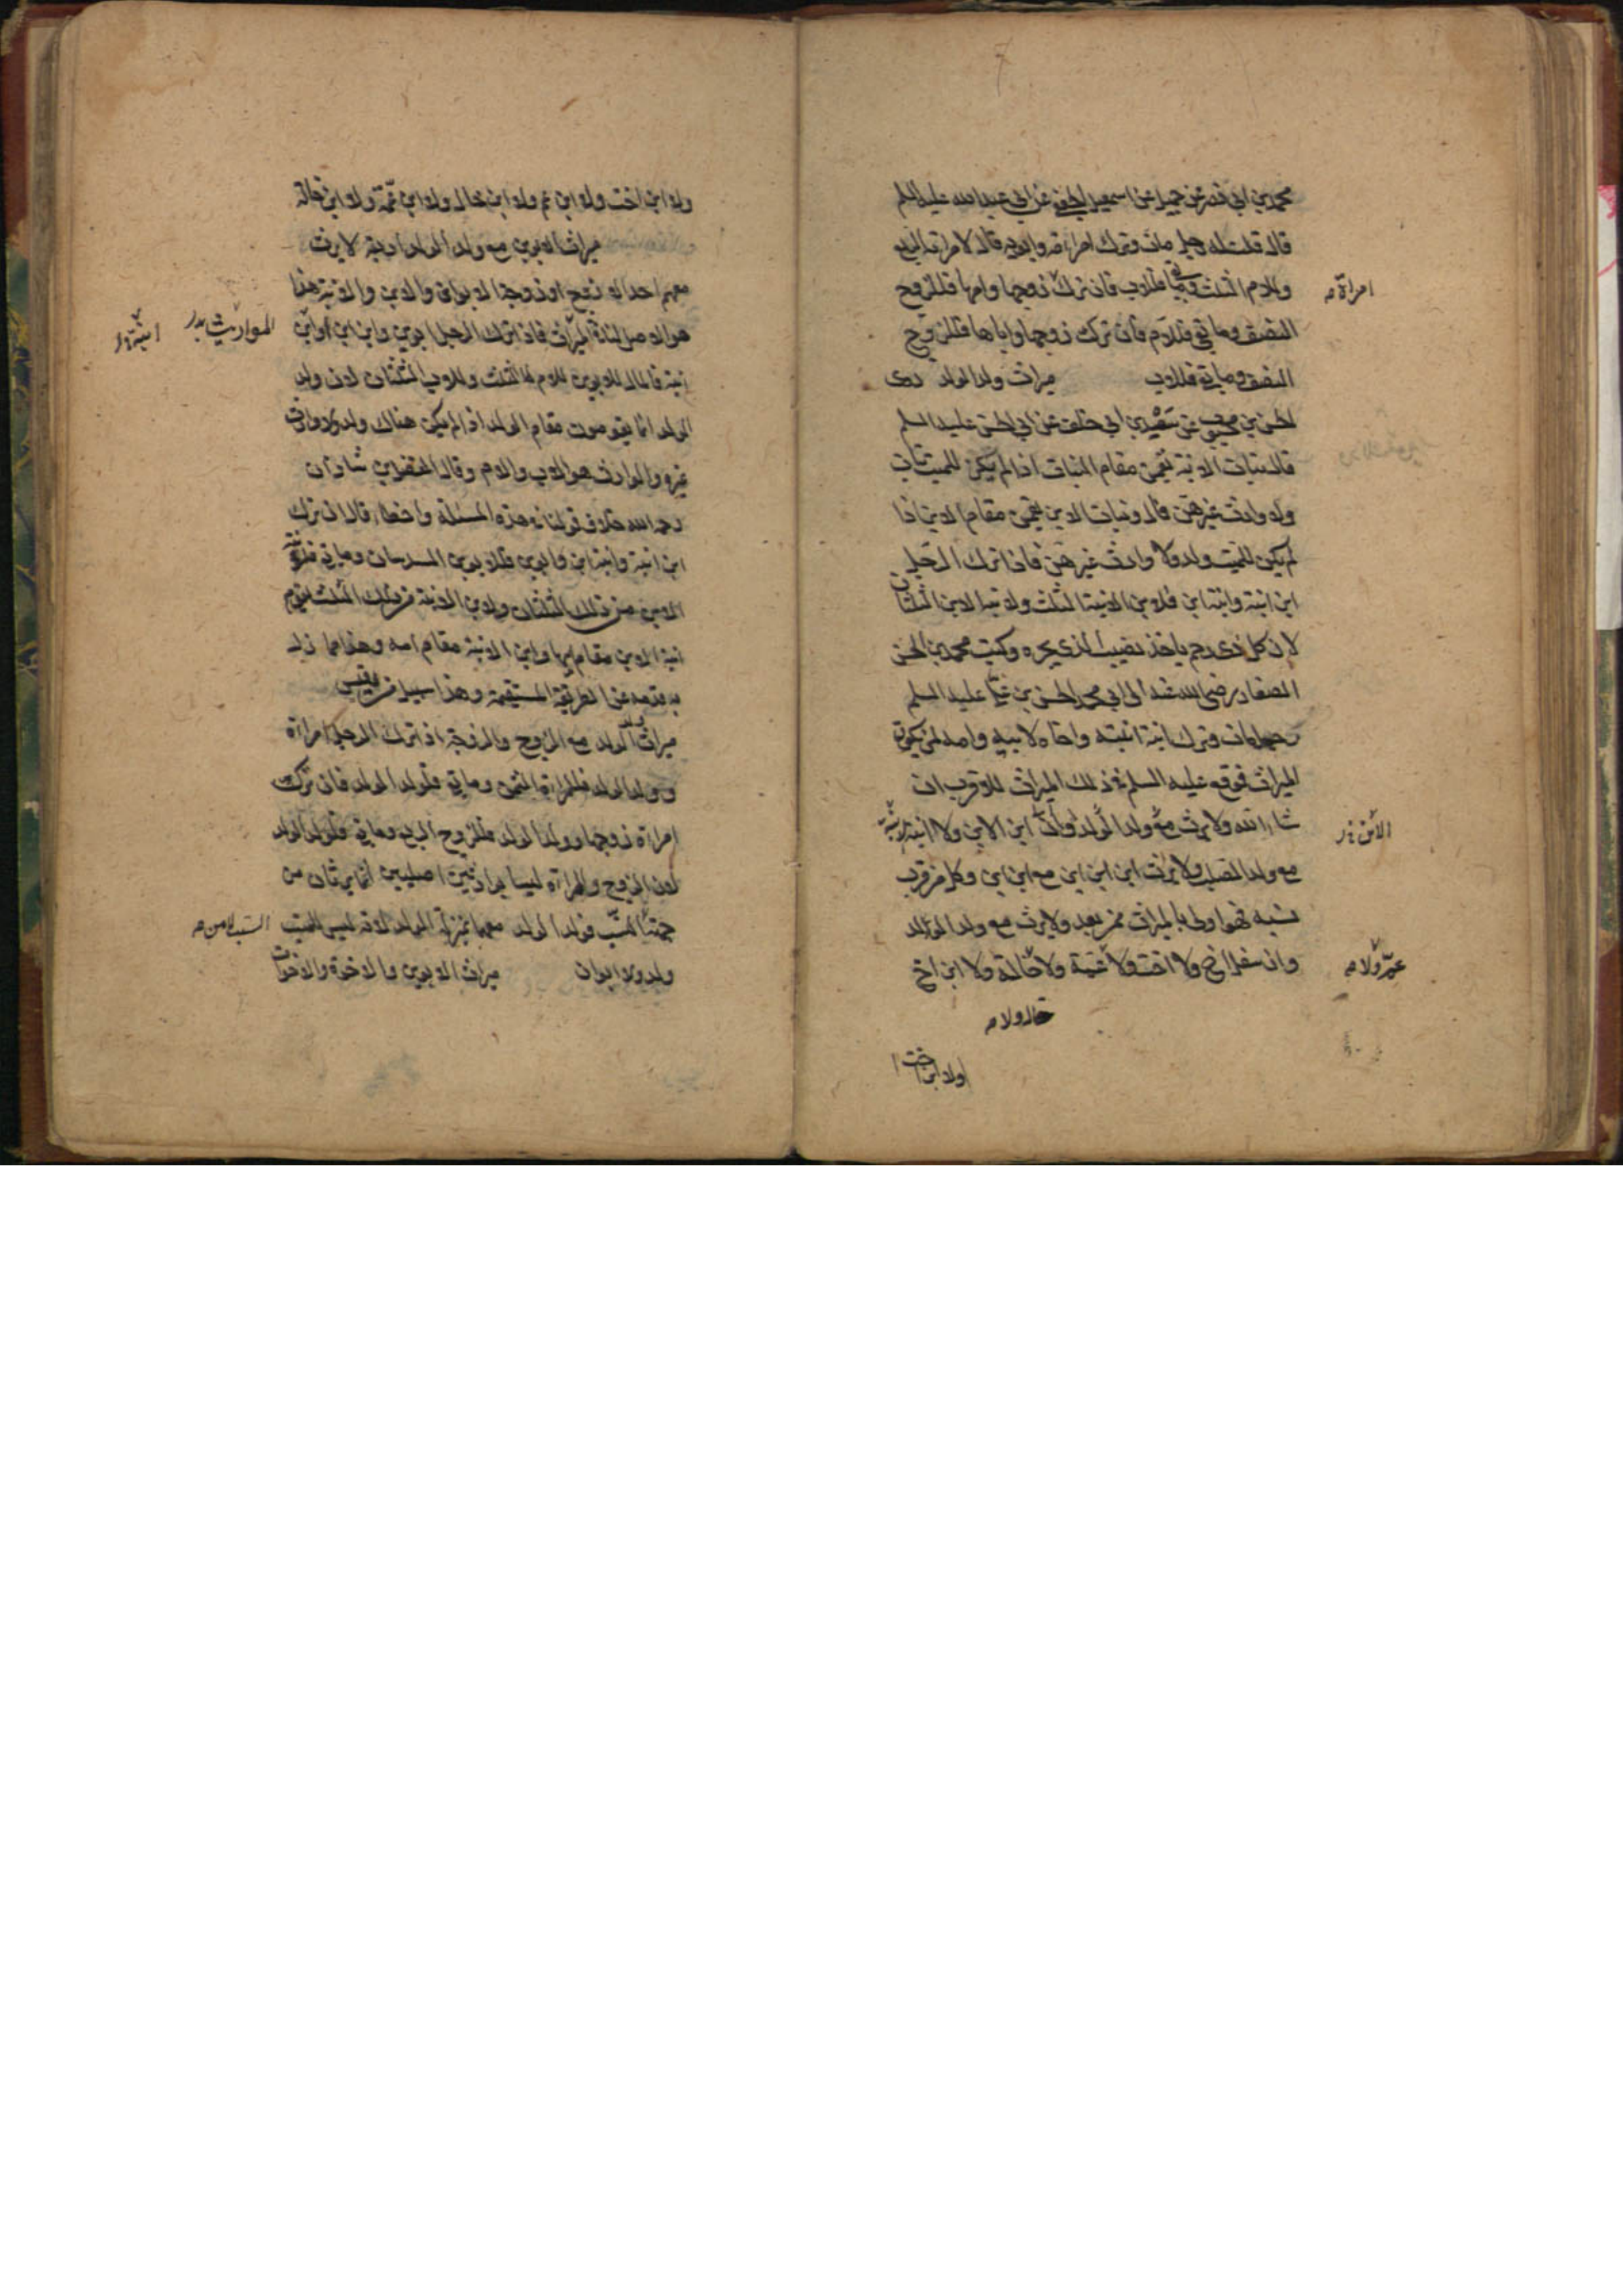 محمد بن ابي عمير عن جميل عن اسمعيل الجعفي عن ابي عبد الله عليه السلم
قال قلت له رجل مات وترك امراته وابويه قال لامراته الربع
وللام الثلث وما بقي فللاب فان تركت زوجها وامها فللزوج
امراة
النصف وما بقي فللام فان تركت زوجها واباها فللزوج
النصف وما بقي فللاب ميراث ولد الولد روى
الحسن بن محبوب عن سعد بن ابي خلف عن ابي الحسن عليه السلم
قال بنات الابنة يقمن مقام البنات اذا لم يكن للميت بنات
ولا وارث غيرهن قال وبنات الابن يقمن مقام الابن اذا
لم يكن للميت ولد ولا وارث غيرهن فاذا ترك الرجل
ابن ابنة وابنة ابن فلابن الابنة الثلث ولابنة الابن الثلثان
لان كل ذي رحم ياخذ نصيب الذي يجره وكتب محمد بن الحسن
الصفار رضي الله عنه الى ابي محمد الحسن بن علي عليه السلم
رجل مات وترك ابنة ابنته واخاه لابيه وامه لمن يكون
الميراث فوقع عليه السلم في ذلك الميراث للاقرب ان
شاء الله ولا يرث مع ولد الولد ابن الابن ولا ابنة
مع ولد الصلب ولا يرث ابن ابن ابن مع ابن ابن وكل من قرب
نسبه فهو اولى بالميراث ممن بعد ولا يرث مع ولد الولد
وان سفل اخ ولا اخت ولا عمة ولا خالة ولا ابن اخ
عم ولا
خال ولا
ولا ابن اخت
ولا ابن اخت ولا ابن عم ولا ابن خال ولا ابن عمة ولا ابن خالة
ميراث الابوين مع ولد الولد اربعة لا يرث
معهم احد الا زوج او زوجة الابوان والابن والابنة هذا
هو الاصل لنا في الميراث فاذا ترك الرجل ابوين وابن ابن او ابن
المواريث
ابنة فالمال للابوين للام الثلث وللاب الثلثان لان ولد
الولد انما يقومون مقام الولد اذا لم يكن هناك ولد ولا وارث
غيره والوارث هو الاب والام وقال الفضل بن شاذان
رحمه الله خلاف قولنا في هذه المسئلة واخطا قال ان ترك
ابن ابنة وابنة ابن وابوين فللابوين السدسان وما بقي فلابنة
الابن من ذلك الثلثان ولابن الابنة من ذلك الثلث تقوم
ابنة الابن مقام ابيها وابن الابنة مقام امه وهذا مما زل
به قدمه عن الطريقة المستقيمة وهذا سبيل من يقيس
ميراث ولد الولد مع الزوج والزوجة اذا ترك الرجل امراة
وولد الولد فللمراة الثمن وما بقي فلولد الولد فان تركت
امراة زوجها وولد الولد فللزوج الربع وما بقي فلولد الولد
لان الزوج والمراة ليسا بوارثين اصليين انما يرثان من
جهة السبب فولد الولد معهما بمنزلة الولد لانه ليس للميت
ولد ولا ابوان ميراث الابوين والاخوة والاخوات